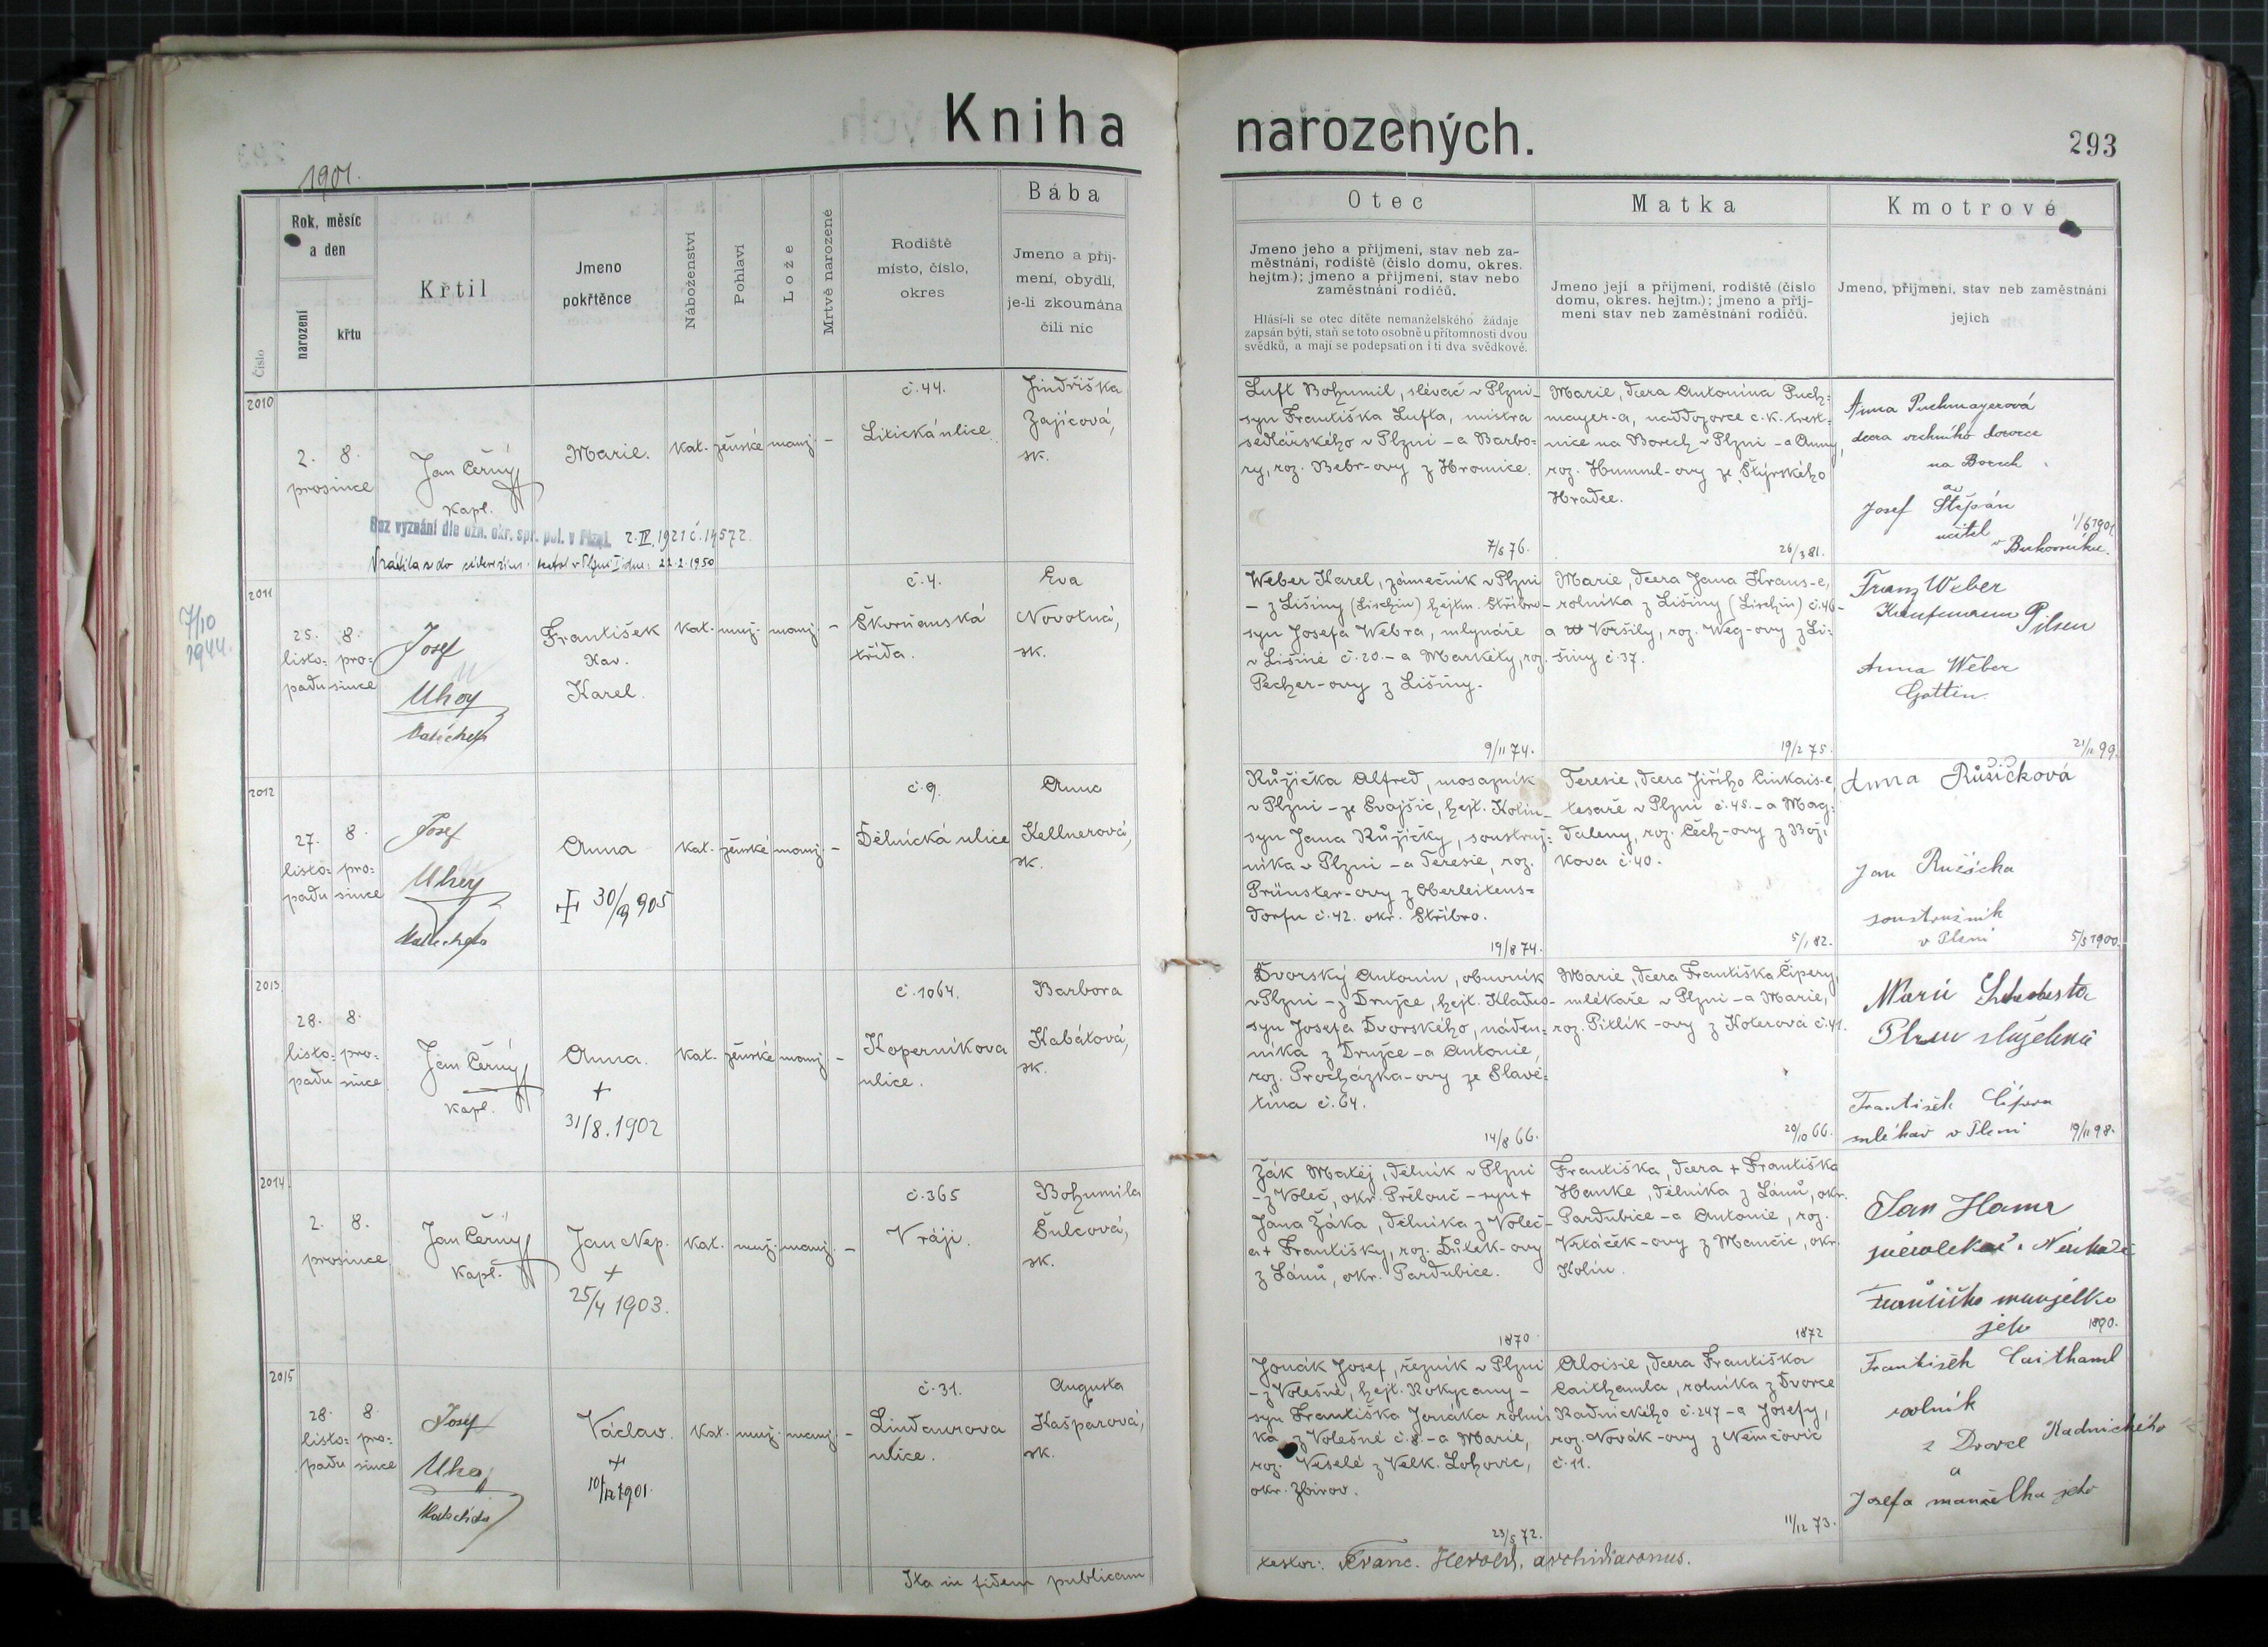 Kniha narozených.
293
1901.
Číslo
Rok, měsíc
a den
narození
křtu
Křtil
Jmeno
pokřtěnce
Náboženství
Pohlaví
Lože
Mrtvě narozené
Rodiště
místo, číslo,
okres
Bába
Jmeno a příj-
mení, obydlí,
je-li zkoumána
čili nic
Otec
Jmeno jeho a příjmení, stav neb za-
městnání, rodiště (číslo domu, okres.
hejtm.); jmeno a příjmení, stav nebo
zaměstnání rodičů.
Hlásí-li se otec dítěte nemanželského žádaje
zapsán býti, staň se toto osobně u přítomnosti dvou
svědků, a mají se podepsati on i ti dva svědkové.
Matka
Jmeno její a příjmení, rodiště (číslo
domu, okres. hejtm.); jmeno a příj-
mení stav neb zaměstnání rodičů.
Kmotrové
Jmeno, příjmení, stav neb zaměstnání
jejich
2010
2. 8.
prosince
Jan Černý
kapl.
Marie.
kat. ženské manž. –
č. 44.
Litická ulice
Jindřiška
Zajícová,
sk.
Bez vyznání dle ozn. okr. spr. pol. v Plzni 2.IV.1921 č. 14572.
22.2.1950
Luft Bohumil, slévač v Plzni –
syn Františka Lufta, mistra
sedlářského v Plzni – a Barbo=
ry, roz. Bebr-ovy z Hromice.
7/6 76.
Marie, dcera Antonína Puch=
mayer-a, naddozorce c. k. trest=
nice na Borech v Plzni – a Anny,
roz. Hummel-ovy ze Štýrského
Hradce.
26/3 81.
Anna Puchmayerová
dcera vrchního dozorce
na Borech
a
Josef Štěpán
učitel
v Bukovníku.
1/6 1901
2011
7/10
1944.
25. 8.
listo= pro=
padu since
Josef
Uhoy
Katecheta
František
Xav.
Karel.
kat. muž. manž. –
č. 4.
Škorňanská
třída.
Eva
Novotná,
sk.
Weber Karel, zámečník v Plzni
– z Lišiny (Lischin) hejtm. Stříbro –
syn Josefa Webra, mlynáře
v Lišině č. 20. – a Markéty, roz.
Pecher-ovy z Lišiny.
9/11 74.
Marie, dcera Jana Kraus-e,
rolníka z Lišiny (Lischin) č. 46 –
a Voršily, roz. Weg-ovy z Li=
šiny č. 37.
19/2 75.
Franz Weber
Kaufmann Pilsen
Anna Weber
Gattin.
21/11 99.
2012
27. 8.
listo= pro=
padu since
Josef
Uhoy
Katecheta
Anna
+ 30/9 905
kat. ženské manž. –
č. 9.
Dělnická ulice
Anna
Kellnerová,
sk.
Růžička Alfred, mosazník
v Plzni – ze Svojšic, hejt. Kolín –
syn Jana Růžičky, soustruž=
níka v Plzni – a Teresie, roz.
Prünster-ovy z Oberleitens=
dorfu č. 42. okr. Stříbro.
19/8 74.
Teresie, dcera Jiřího Cinkais-e,
tesaře v Plzni č. 45. – a Mag=
daleny, roz. Čech-ovy z Boži=
kova č. 40.
5/1 82.
Anna Růžičková
Jan Ružička
soustružník
v Plzni
5/5 1900.
2013
28. 8.
listo= pro=
padu since
Jan Černý
kapl.
Anna.
+
31/8. 1902
kat. ženské manž. –
č. 1064.
Koperníkova
ulice.
Barbora
Kabátová,
sk.
Dvorský Antonín, obuvník
v Plzni – z Družce, hejt. Kladno –
syn Josefa Dvorského, náden=
níka z Družce – a Antonie,
roz. Procházka-ovy ze Slavě=
tína č. 64.
14/8 66.
Marie, dcera Františka Čipery,
mlékaře v Plzni – a Marie,
roz. Pitlík-ovy z Koterova č. 41.
20/10 66.
Marie
Plzeň služebná
František Čipera
mlékař v Plzni
19/11 98.
2014
2. 8.
prosince
Jan Černý
kapl.
Jan Nep.
+
25/4 1903.
kat. muž. manž. –
č. 365
V ráji.
Bohumila
Šulcová,
sk.
Žák Matěj, dělník v Plzni
– z Voleč, okr. Přelouč – syn +
Jana Žáka, dělníka z Voleč –
a + Františky, roz. Důtek-ovy
z Lánů, okr. Pardubice.
1870
Františka, dcera + Františka
Hanke, dělníka z Lánů, okr.
Pardubice – a Antonie, roz.
Vrtáček-ovy z Mančic, okr.
Kolín.
1872
Jan Hamr
Františka manželka
jeho
1890.
2015
28. 8.
listo= pro=
padu since
Josef
Uhoy
Katecheta
Václav.
+
10/12 1901.
kat. muž. manž. –
č. 31.
Lindaurova
ulice.
Augusta
Kašparová,
sk.
Jonák Josef, řezník v Plzni
– z Volešné, hejt. Rokycany –
syn Františka Jonáka rolní=
ka z Volešné č. 8. – a Marie,
roz. Veselé z Velk. Lohovic,
okr. Zbirov.
23/5 72.
Aloisie, dcera Františka
Caithamla, rolníka z Dvorce
Radnického č. 247 – a Josefy,
roz. Novák-ovy z Němčovic
č. 11.
11/12 73.
František Caithaml
rolník
z Dvorce Radnického
a
Josefa manželka jeho
Ita in fidem publicam
testor: Franc. Herold, archidiaconus.